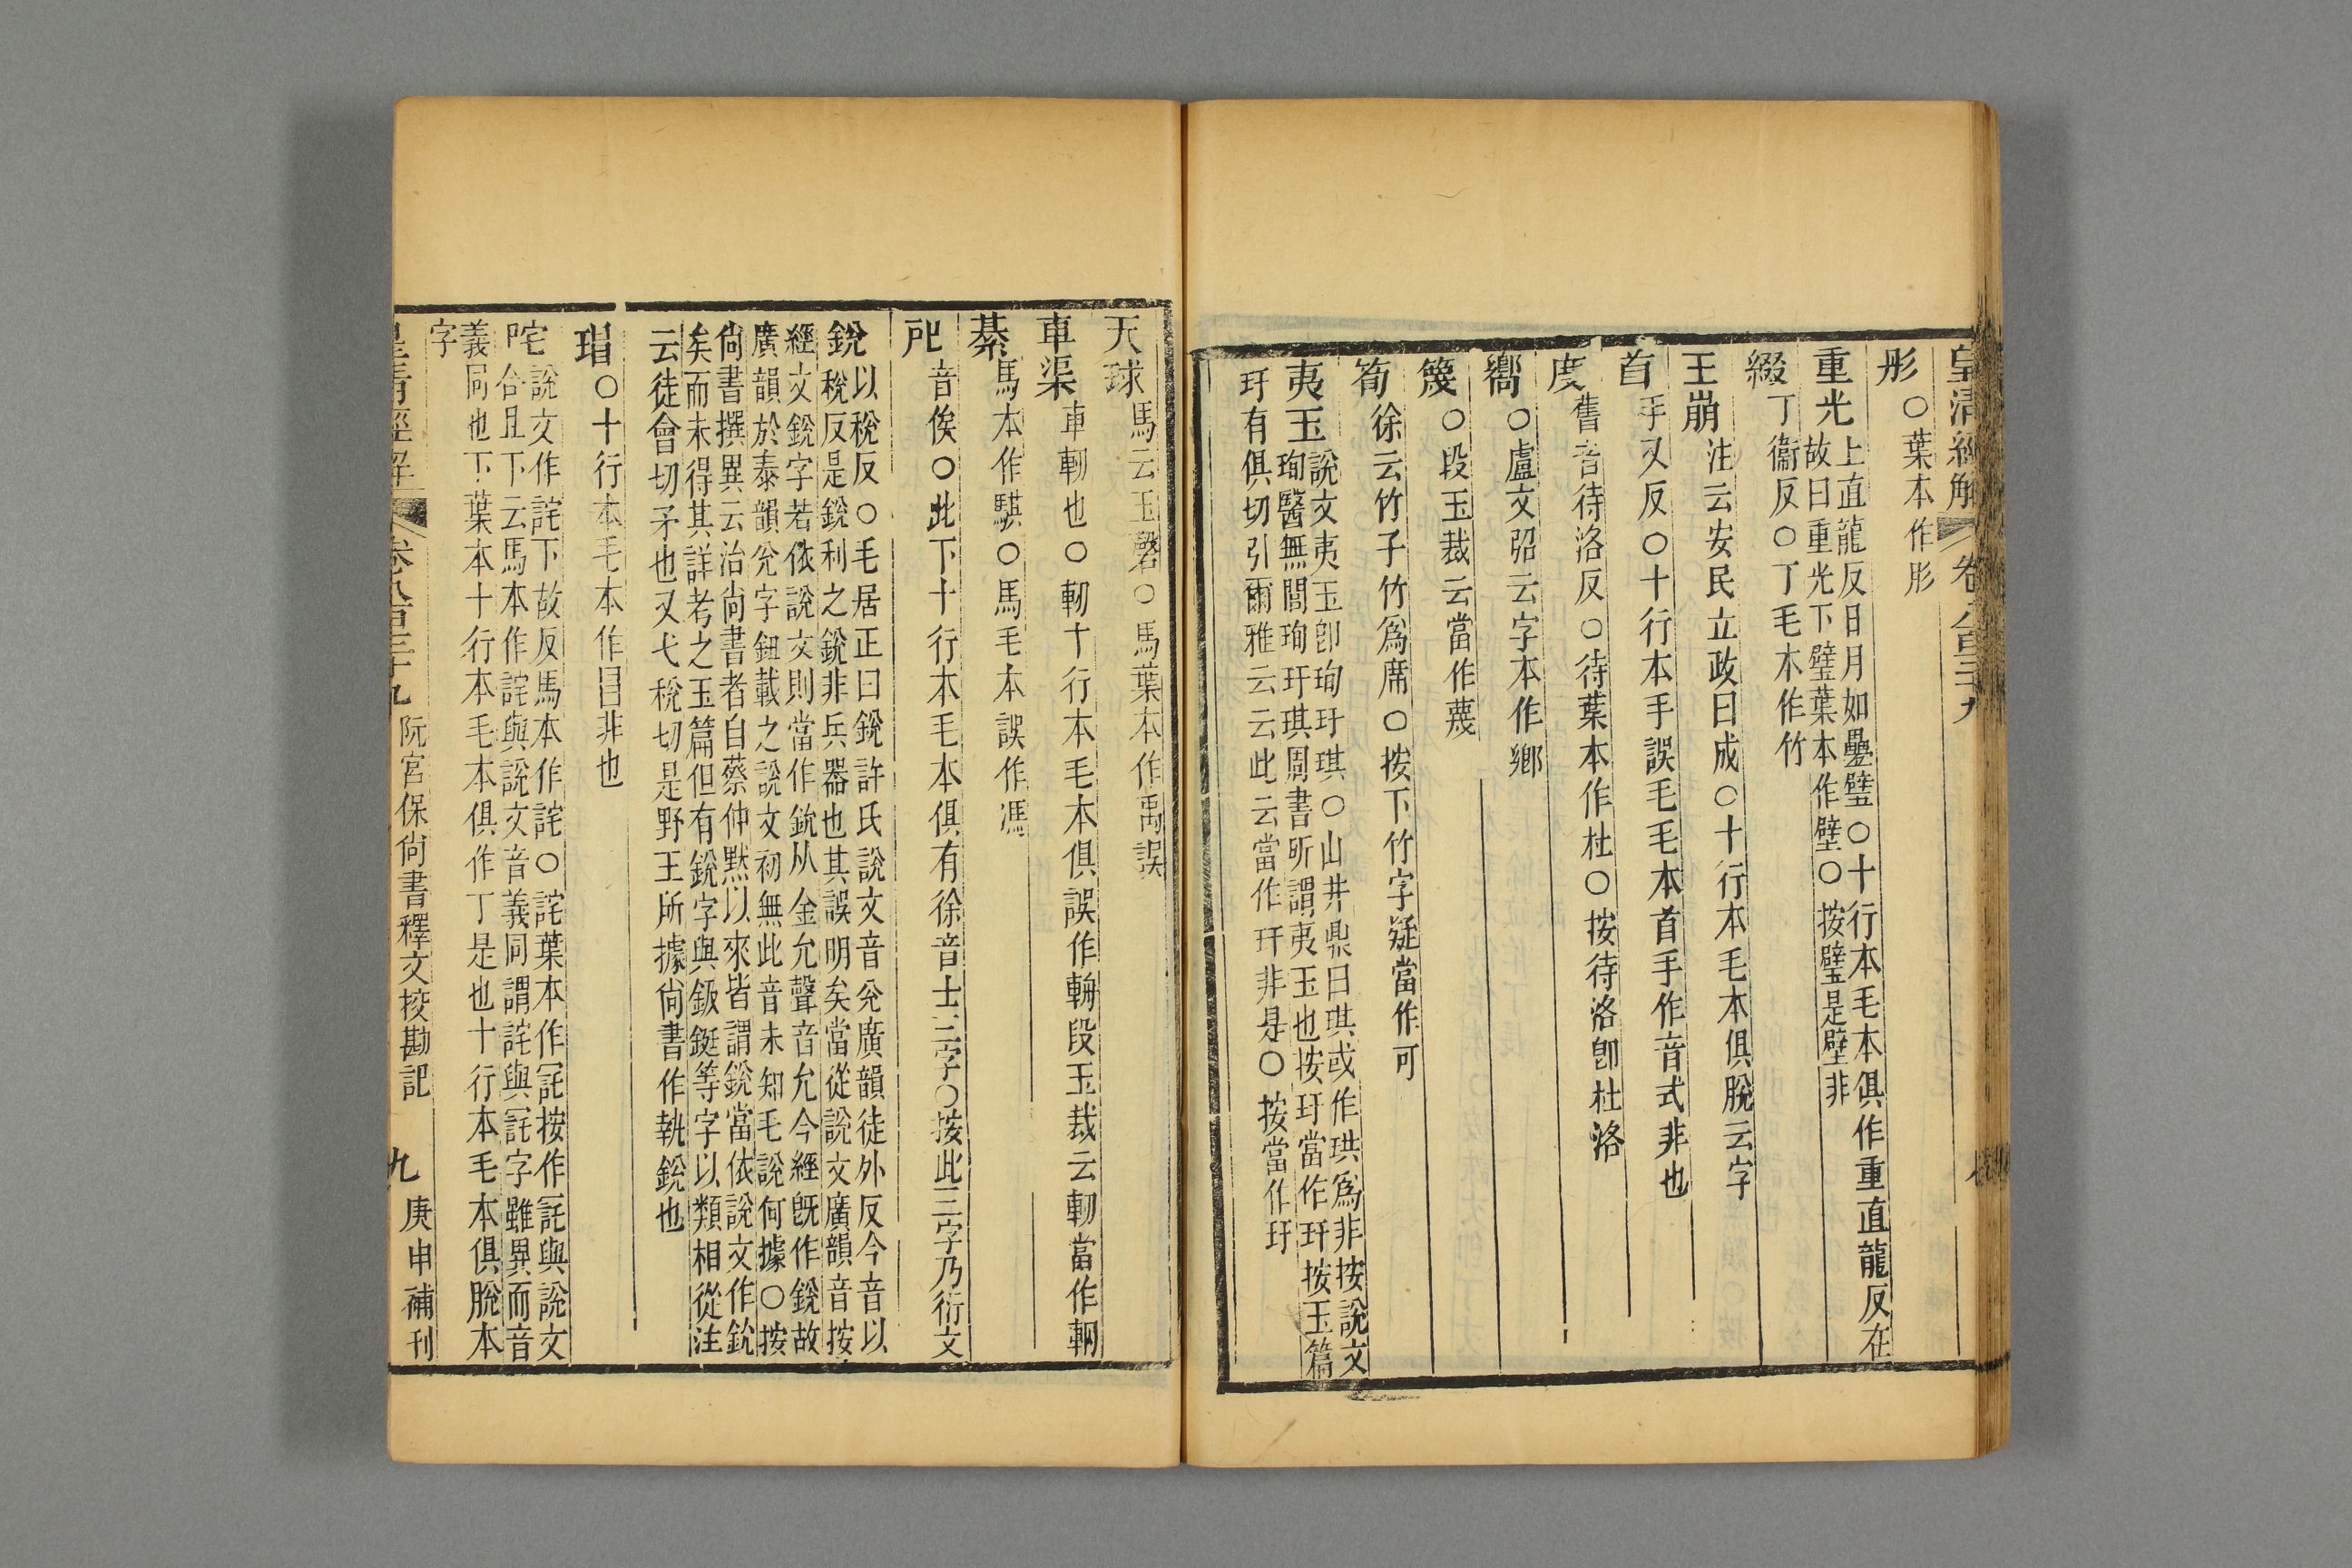 皇清經解 卷八百三十九
彤 ○葉本作肜
重光 上直龍反日月如疊璧○十行本毛本俱作重直龍反在
故曰重光下璧葉本作壁○按璧是壁非
綴 丁衞反○丁毛本作竹
王崩 注云安民立政曰成○十行本毛本俱脫云字
首 手又反○十行本手誤毛毛本首手作音式非也
度 舊音待洛反○待葉本作杜○按待洛卽杜洛
嚮 ○盧文弨云字本作鄉
篾 ○段玉裁云當作蔑
筍 徐云竹子竹爲席○按下竹字疑當作可
夷玉 說文夷玉卽珣玗琪○山井鼎曰琪或作珙爲非按說文
珣醫無閭珣玗琪周書所謂夷玉也按玗當作玕按玉篇
玗有俱切引爾雅云云此云當作玕非是○按當作玗
天球 馬云玉磬○馬葉本作禹誤
車渠 車輞也○輞十行本毛本俱誤作輈段玉裁云輞當作輞
綦 馬本作騏○馬毛本誤作馮
戺 音俟○此下十行本毛本俱有徐音士三字○按此三字乃衍文
銳 以稅反○毛居正曰銳許氏說文音兌廣韻徒外反今音以
稅反是銳利之銳非兵器也其誤明矣當從說文廣韻音按
經文銳字若依說文則當作鈗从金允聲音允今經旣作銳故
廣韻於泰韻兌字鈕載之說文初無此音未知毛說何據○按
尙書撰異云治尙書者自蔡仲默以來皆謂銳當依說文作鈗
矣而未得其詳考之玉篇但有銳字與鈑鋌等字以類相從注
云徒會切矛也又弋稅切是野王所據尙書作執銳也
瑁 ○十行本毛本作冒非也
咤 說文作詫下故反馬本作詫○詫葉本作㓃按作㓃與說文
合且下云馬本作詫與說文音義同謂詫與㓃字雖異而音
義同也下葉本十行本毛本俱作丁是也十行本毛本俱脫本
字
皇清經解 卷八百三十九 阮宮保尙書釋文挍勘記 九 庚申補刊